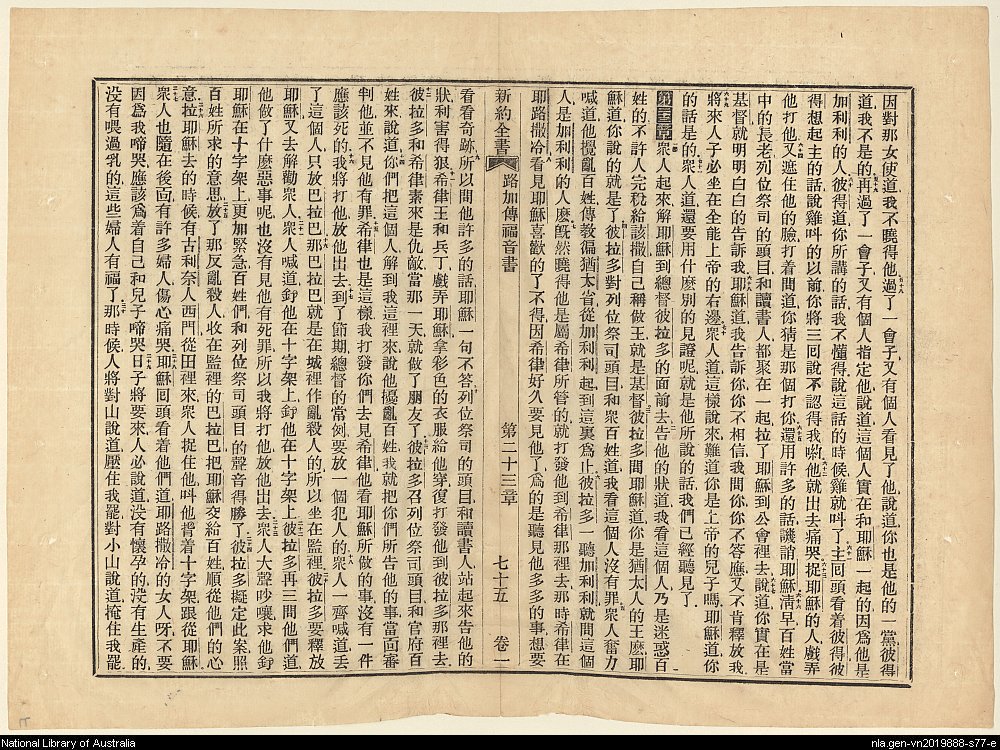 因對那女使道我不曉得他過了一會子又有個人看見了他說道你也是他的一黨彼得
道我不是的再過了一會子又有個人指定他說道這個人實在和耶穌一起的因爲他是
加利利的人彼得道你所講的話我不懂得說這話的時候雞就呌了主囘頭看着彼得彼
得想起主的話說雞呌的以前你將三囘說不認得我喲他就出去痛哭捉耶穌的人戲弄
他打他又遮住他的臉打着問道你猜是那個打你還用許多的話譏誚耶穌淸早百姓當
中的長老列位祭司的頭目和讀書人都聚在一起拉了耶穌到公會裡去說道你實在是
基督就明明白白的告訴我耶穌道我告訴你你不相信我問你你不答應又不肯釋放我
將來人子必坐在全能上帝的右邊衆人道這樣說來難道你是上帝的兒子嗎耶穌道你
的話是的衆人道還要用什麽別的見證呢就是他所說的話我們已經聽見了
第二十三章衆人起來解耶穌到總督彼拉多的面前去告他的狀道我看這個人乃是迷惑百
姓的不許人完稅給該撒自己稱做王就是基督彼拉多問耶穌道你是猶太人的王麽耶
穌道你說的就是了彼拉多對列位祭司頭目和衆百姓道我看這個人沒有罪衆人奮力
喊道他攪亂百姓傳教徧猶太省從加利利起到這裏爲止彼拉多一聽加利利就問這個
人是加利利的人麽旣然曉得他是屬希律所管的就打發他到希律那裡去那時希律在
耶路撒冷看見耶穌喜歡的了不得因希律好久要見他了爲的是聽見他多多的事想要
新約全書 路加傳福音書 第二十三章 七十五 卷一
看看奇跡所以問他許多的話耶穌一句不答列位祭司的頭目和讀書人站起來告他的
狀利害得狠希律王和兵丁戲弄耶穌拿彩色的衣服給他穿復打發他到彼拉多那裡去
彼拉多和希律素來是仇敵當那一天就做了朋友了彼拉多召列位祭司頭目和官府百
姓來說道你們把這個人解到我這裡來說他擾亂百姓我就把你們所告他的事當面審
判他並不見他有罪希律也是這樣我打發你們去見希律他看耶穌所做的事沒有一件
應該死的我將打他放他出去到了節期總督的常例要放一個犯人的衆人一齊喊道丢
了這個人只放巴拉巴那巴拉巴就是在城裡作亂殺人的所以坐在監裡彼拉多要釋放
耶穌又去解勸衆人衆人喊道釘他在十字架上釘他在十字架上彼拉多再三問他們道
他做了什麽惡事呢也沒有見他有死罪所以我將打他放他出去衆人大聲吵嚷求他釘
耶穌在十字架上更加緊急百姓們和列位祭司頭目的聲音得勝了彼拉多擬定此案照
百姓所求的意思放了那反亂殺人收在監裡的巴拉巴把耶穌交給百姓順從他們的心
意拉耶穌去的時候有古利奈人西門從田裡來衆人捉住他呌他揹着十字架跟從耶穌
衆人也隨在後面有許多婦人傷心痛哭耶穌囘頭看着他們道耶路撒冷的女人呀不要
因爲我啼哭應該爲着自己和兒子啼哭日子將要來人必說道沒有懷孕的沒有生產的
沒有喂過乳的這些婦人有福了那時候人將對山說道壓住我罷對小山說道掩住我罷
National Library of Australia
nla.gen-vn2019888-s77-e